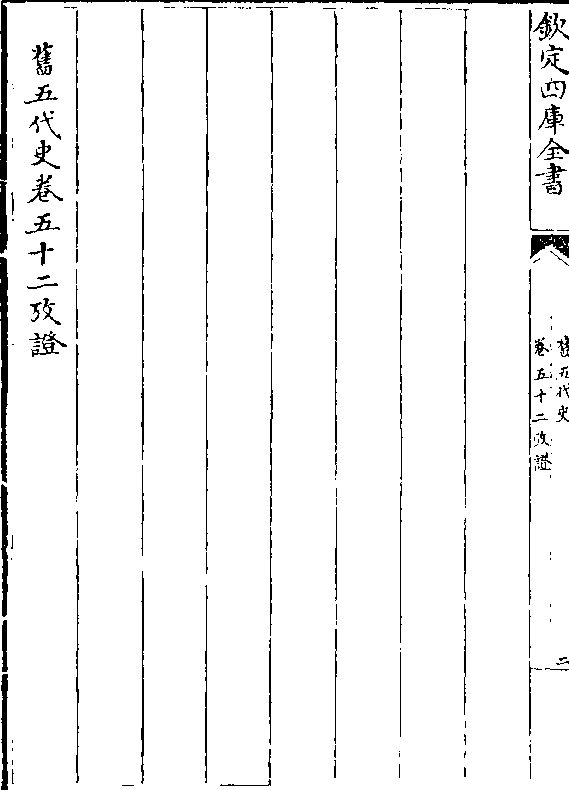 欽定四庫全書
舊五代史
卷五十二攷證
二
舊五代史卷五十二攷證